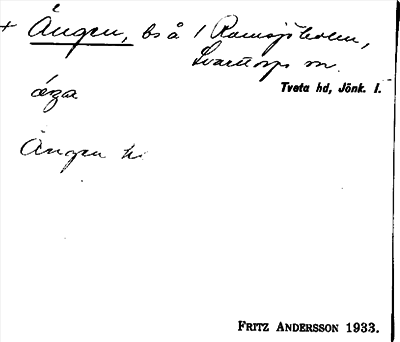 + Ängen, bs å 1 Ramsjöholm,
Svarttorps sn.
Tveta hd, Jönk. l.
äŋa
Ängen
FRITZ ANDERSSON 1933.